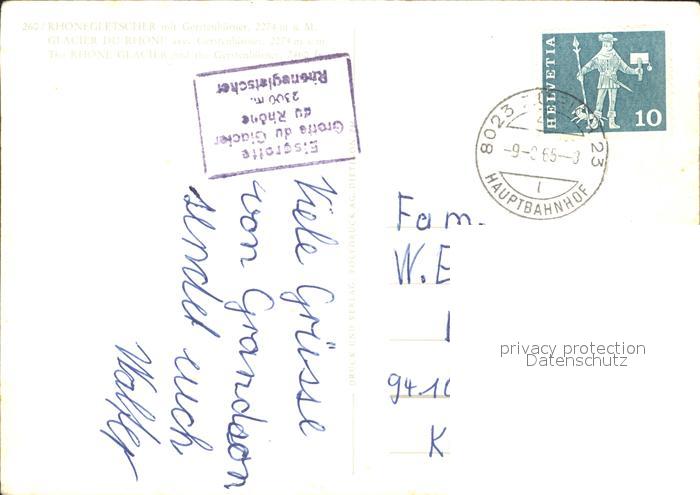 260/ RHONEGLETSCHER mit Gerstenhörner, 2274 m ü. M.
GLACIER DU RHONE avec Gerstenhörner, 2274 m s. m.
The RHONE GLACIER and the Gerstenhörner,
Eisgrotte
Grotte du Glacier
du Rhône
2300 m.
Rhonegletscher
Viele Grüsse
von Grandson
sendet euch
Walter
DRUCK UND VERLAG
HELVETIA
10
8023
23
-9-
65-
HAUPTBAHNHOF
1
Fam.
W. E
94.10
K
privacy protection
Datenschutz